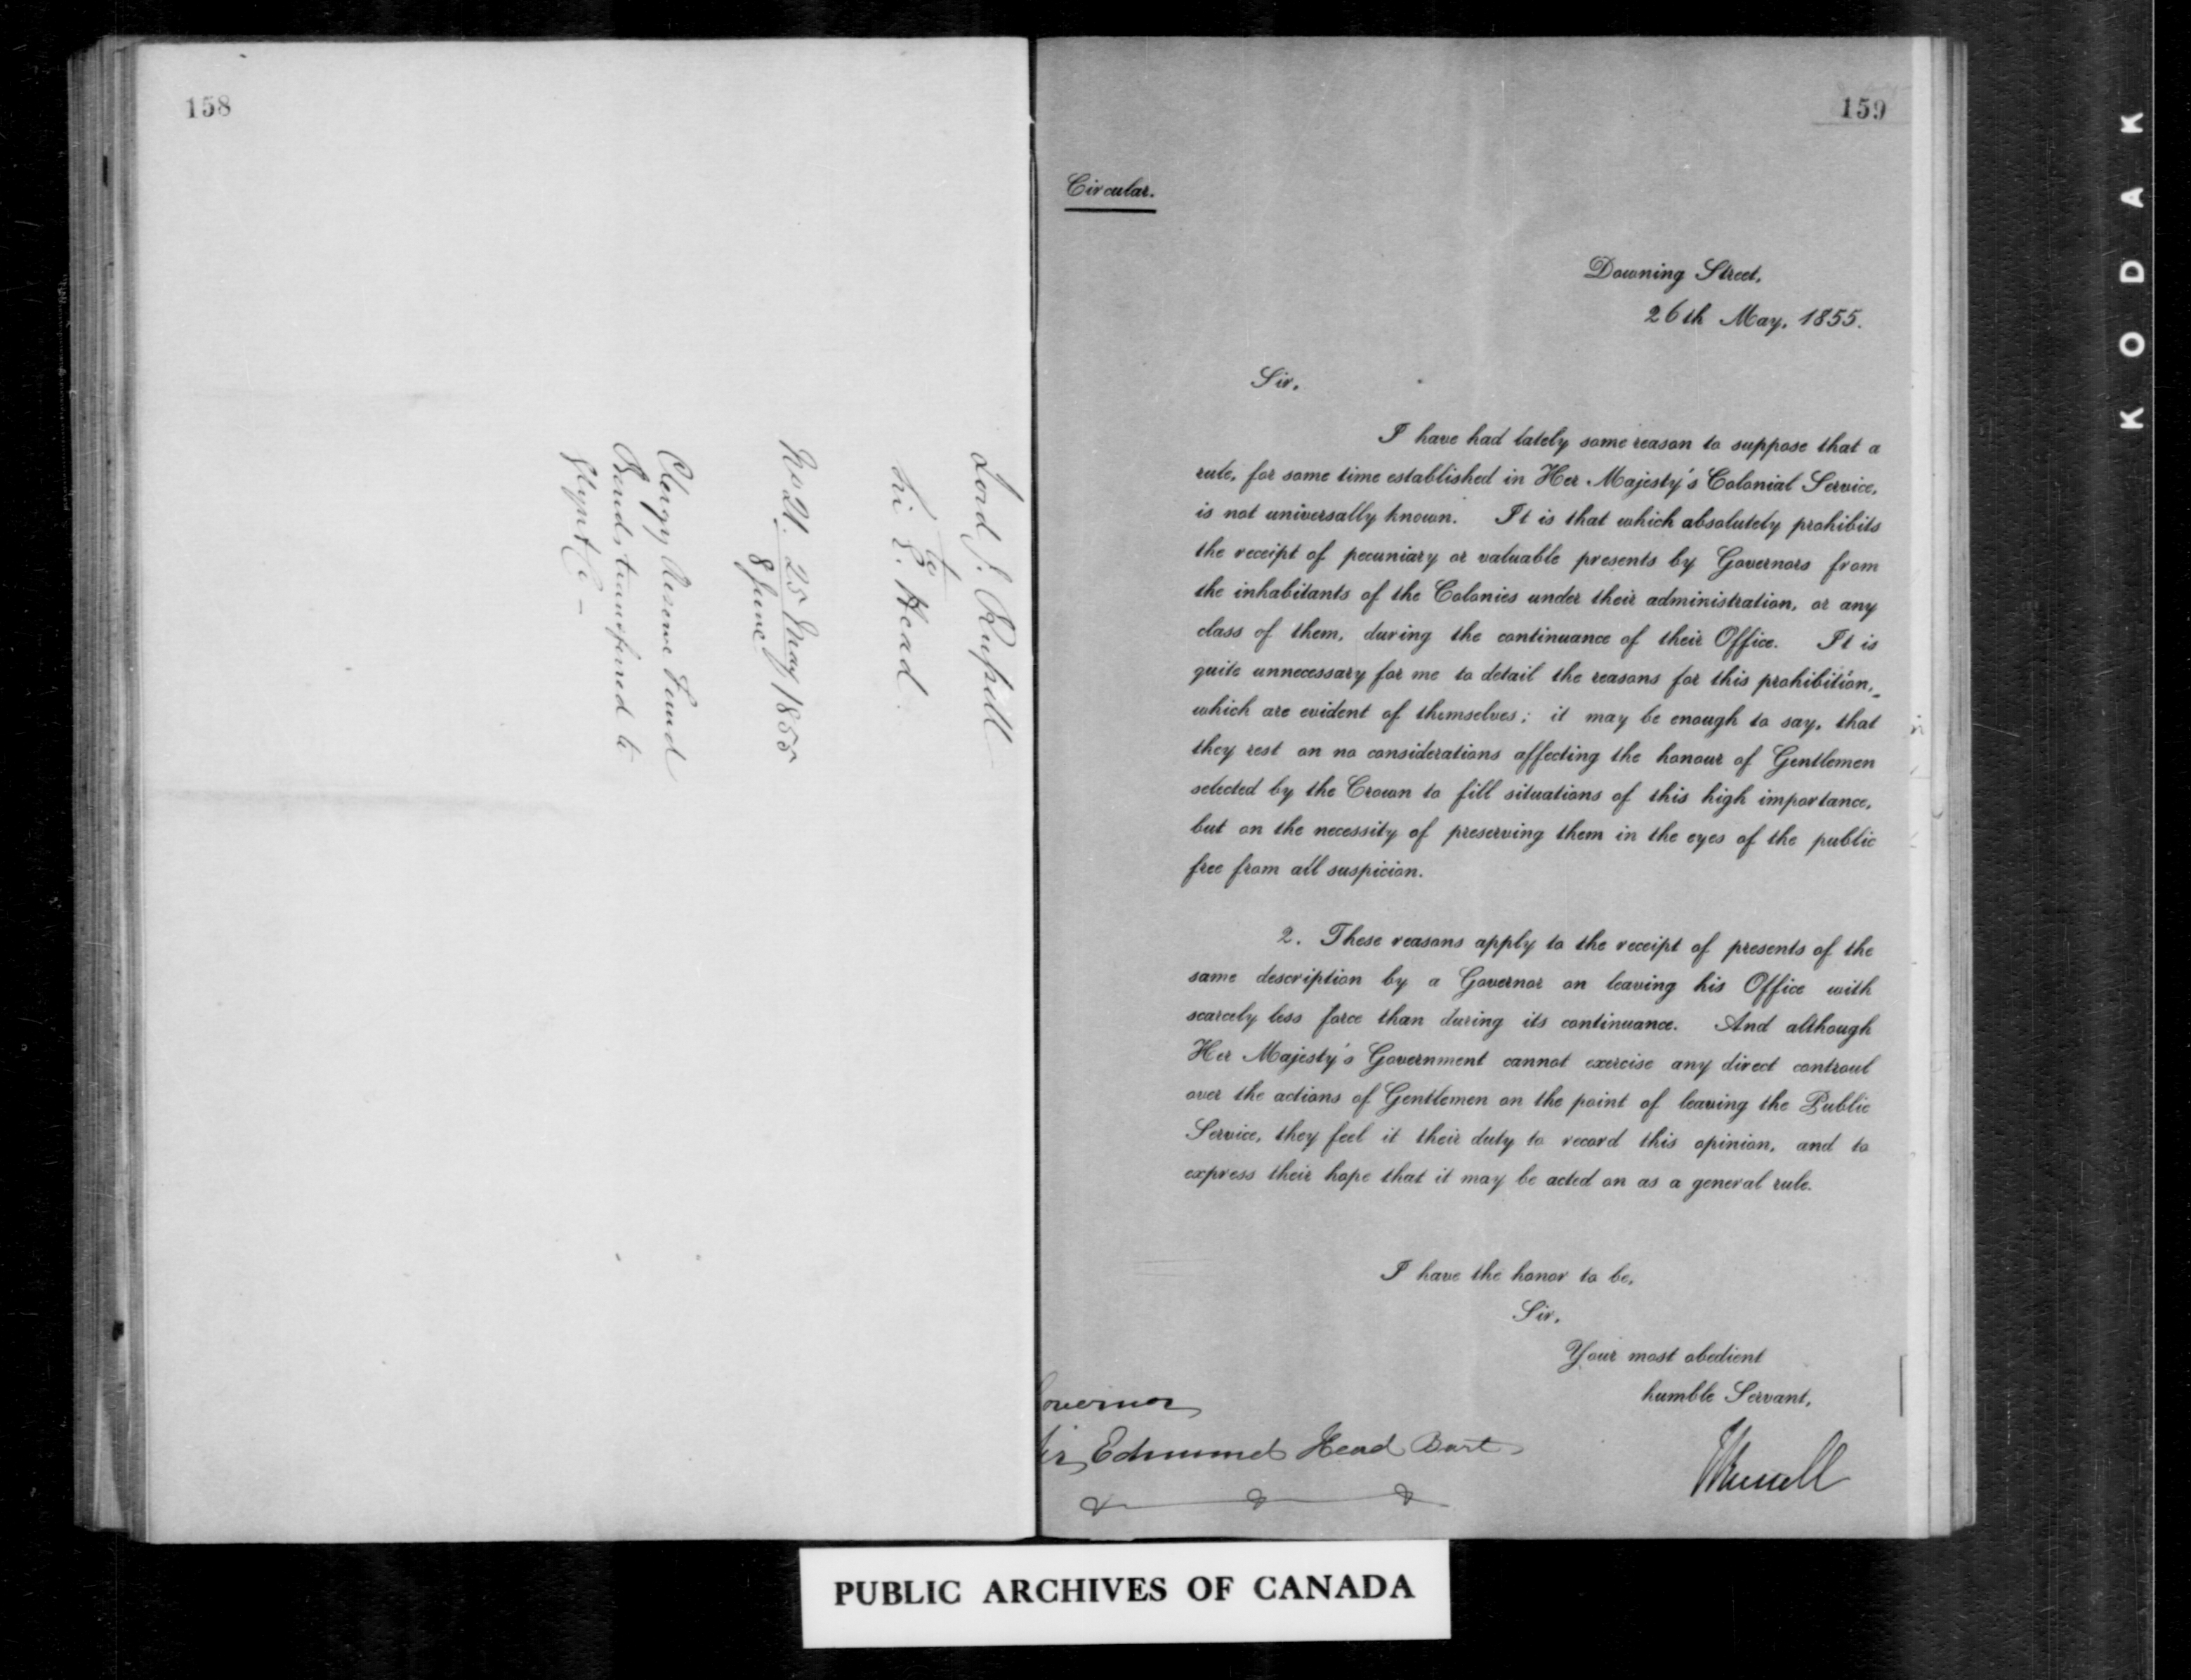 158
Lord J. Russell
to
Sir E. Head.
No 21. 25 May 1855
8 June
Clergy Reserve Fund
transferred to
Glyn & Co
159
Circular.
Downing Street,
26th May, 1855.
Sir,
I have had lately some reason to suppose that a
rule, for some time established in Her Majesty's Colonial Service,
is not universally known. It is that which absolutely prohibits
the receipt of pecuniary or valuable presents by Governors from
the inhabitants of the Colonies under their administration, or any
class of them, during the continuance of their Office. It is
quite unnecessary for me to detail the reasons for this prohibition,
which are evident of themselves; it may be enough to say, that
they rest on no considerations affecting the honour of Gentlemen
selected by the Crown to fill situations of this high importance,
but on the necessity of preserving them in the eyes of the public
free from all suspicion.
2. These reasons apply to the receipt of presents of the
same description by a Governor on leaving his Office with
scarcely less force than during its continuance. And although
Her Majesty's Government cannot exercise any direct controul
over the actions of Gentlemen on the point of leaving the Public
Service, they feel it their duty to record this opinion, and to
express their hope that it may be acted on as a general rule.
I have the honor to be,
Sir,
Your most obedient
humble Servant,
overnor
ir Edmund Head Bart
J Russell
PUBLIC ARCHIVES OF CANADA
KODAK